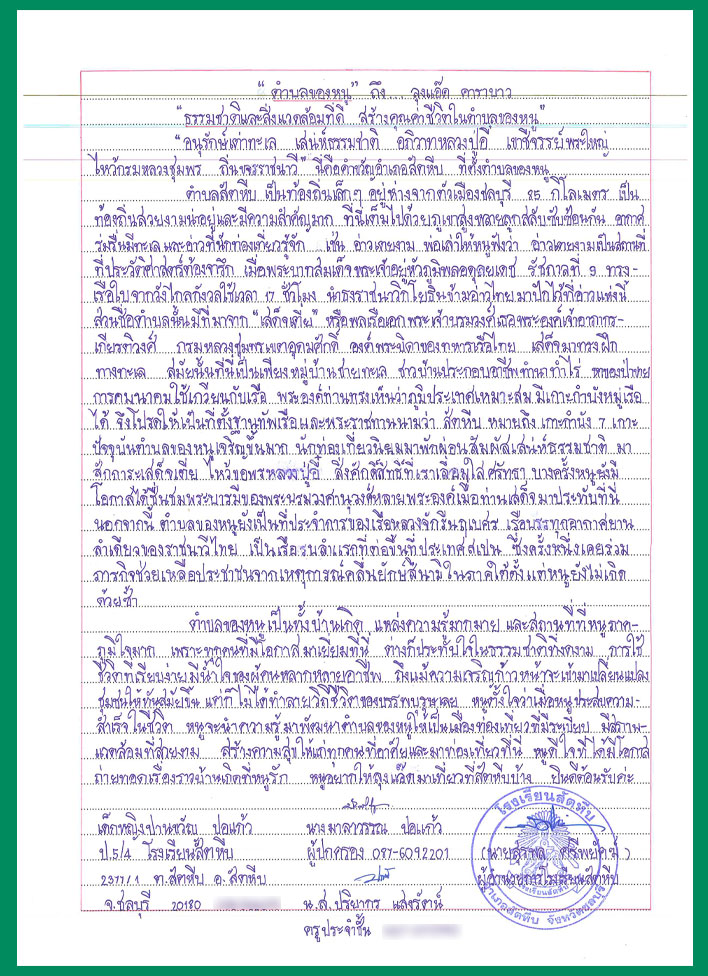 "ตำบลของหนู" ถึง... ลุงแอ๊ด คาราบาว
"ธรรมชาติและสิ่งแวดล้อมที่ดี สร้างคุณค่าชีวิตในตำบลของหนู"
"อนุรักษ์เต่าทะเล เสน่ห์ธรรมชาติ อภิวาทหลวงปู่อี๋ เขาชีจรรย์พระใหญ่
ไหว้กรมหลวงชุมพร ถิ่นขจรราชนาวี" นี่คือคำขวัญอำเภอสัตหีบ ที่ตั้งตำบลของหนู
ตำบลสัตหีบ เป็นท้องถิ่นเล็กๆ อยู่ห่างจากตัวเมืองชลบุรี 85 กิโลเมตร เป็น
ท้องถิ่นสวยงามน่าอยู่และมีความสำคัญมาก ที่นี่เต็มไปด้วยภูเขาสูงหลายลูกสลับซับซ้อนกัน อากาศ
ร่มรื่นมีทะเลและอ่าวที่นักท่องเที่ยวรู้จัก เช่น อ่าวเตยงาม พ่อเล่าให้หนูฟังว่า อ่าวเตยงามเป็นสถานที่
ที่ประวัติศาสตร์ต้องจารึก เมื่อพระบาทสมเด็จพระเจ้าอยู่หัวภูมิพลอดุลยเดช รัชกาลที่ 9 ทรง-
เรือใบจากวังไกลกังวลใช้เวลา 17 ชั่วโมง นำธงราชนาวิกโยธินข้ามอ่าวไทยมาปักไว้ที่อ่าวแห่งนี้
ส่วนชื่อตำบลนั้นมีที่มาจาก "เสด็จเตี่ย" หรือพลเรือเอกพระเจ้าบรมวงศ์เธอพระองค์เจ้าอาภากร-
เกียรติวงศ์ กรมหลวงชุมพรเขตอุดมศักดิ์ องค์พระบิดาของทหารเรือไทย เสด็จมาทรงฝึก
ทางทะเล สมัยนั้นที่นี่เป็นเพียงหมู่บ้านชายทะเล ชาวบ้านประกอบอาชีพทำนาทำไร่ หาของป่าขาย
การคมนาคมใช้เกวียนกับเรือ พระองค์ท่านทรงเห็นว่าภูมิประเทศเหมาะสม มีเกาะกำบังหมู่เรือ
ได้ จึงโปรดให้เป็นที่ตั้งฐานทัพเรือและพระราชทานนามว่า สัตหีบ หมายถึง เกาะกำบัง 7 เกาะ
ปัจจุบันตำบลของหนูเจริญขึ้นมาก นักท่องเที่ยวนิยมมาพักผ่อนสัมผัสเสน่ห์ธรรมชาติ มา
สักการะเสด็จเตี่ย ไหว้ขอพรหลวงปู่อี๋ สิ่งศักดิ์สิทธิ์ที่เราเลื่อมใสศรัทธา บางครั้งหนูยังมี
โอกาสได้ชื่นชมพระบารมีของพระบรมวงศานุวงศ์หลายพระองค์เมื่อท่านเสด็จมาประทับที่นี่
นอกจากนี้ ตำบลของหนูยังเป็นที่ประจำการของเรือหลวงจักรีนฤเบศร เรือบรรทุกอากาศยาน
ลำเดียวของราชนาวีไทย เป็นเรือรบลำแรกที่ต่อขึ้นที่ประเทศสเปน ซึ่งครั้งหนึ่งเคยร่วม
ภารกิจช่วยเหลือประชาชนจากเหตุการณ์คลื่นยักษ์สึนามิในภาคใต้ตั้งแต่หนูยังไม่เกิด
ด้วยซ้ำ
ตำบลของหนูเป็นทั้งบ้านเกิด แหล่งความรู้มากมาย และสถานที่ที่หนูภาค-
ภูมิใจมาก เพราะทุกคนที่มีโอกาสมาเยี่ยมที่นี่ ต่างก็ประทับใจในธรรมชาติที่งดงาม การใช้
ชีวิตที่เรียบง่าย มีน้ำใจของผู้คนหลากหลายอาชีพ ถึงแม้ความเจริญก้าวหน้าจะเข้ามาเปลี่ยนแปลง
ชุมชนให้ทันสมัยขึ้น แต่ก็ไม่ได้ทำลายวิถีชีวิตของบรรพบุรุษเลย หนูตั้งใจว่าเมื่อหนูประสบความ-
สำเร็จในชีวิต หนูจะนำความรู้มาพัฒนาตำบลของหนูให้เป็นเมืองท่องเที่ยวที่มีระเบียบ มีสภาพ-
แวดล้อมที่สวยงาม สร้างความสุขให้แก่ทุกคนที่อาศัยและมาท่องเที่ยวที่นี่ หนูดีใจที่ได้มีโอกาส
ถ่ายทอดเรื่องราวบ้านเกิดที่หนูรัก หนูอยากให้ลุงแอ๊ดมาเที่ยวที่สัตหีบบ้าง ยินดีต้อนรับค่ะ
เด็กหญิงปานขวัญ ปอแก้ว นางมาลาวรรณ ปอแก้ว
ป.5/4 โรงเรียนสัตหีบ ผู้ปกครอง 087-6092201 (นายสุรพล
2377/1 ต.สัตหีบ อ.สัตหีบ ผู้อำนวยการโรงเรียนสัตหีบ
จ.ชลบุรี 20180 น.ส.ปริยากร แสงรัตน์
ครูประจำชั้น
โรงเรียนสัตหีบ
อำเภอสัตหีบ จังหวัดชลบุรี